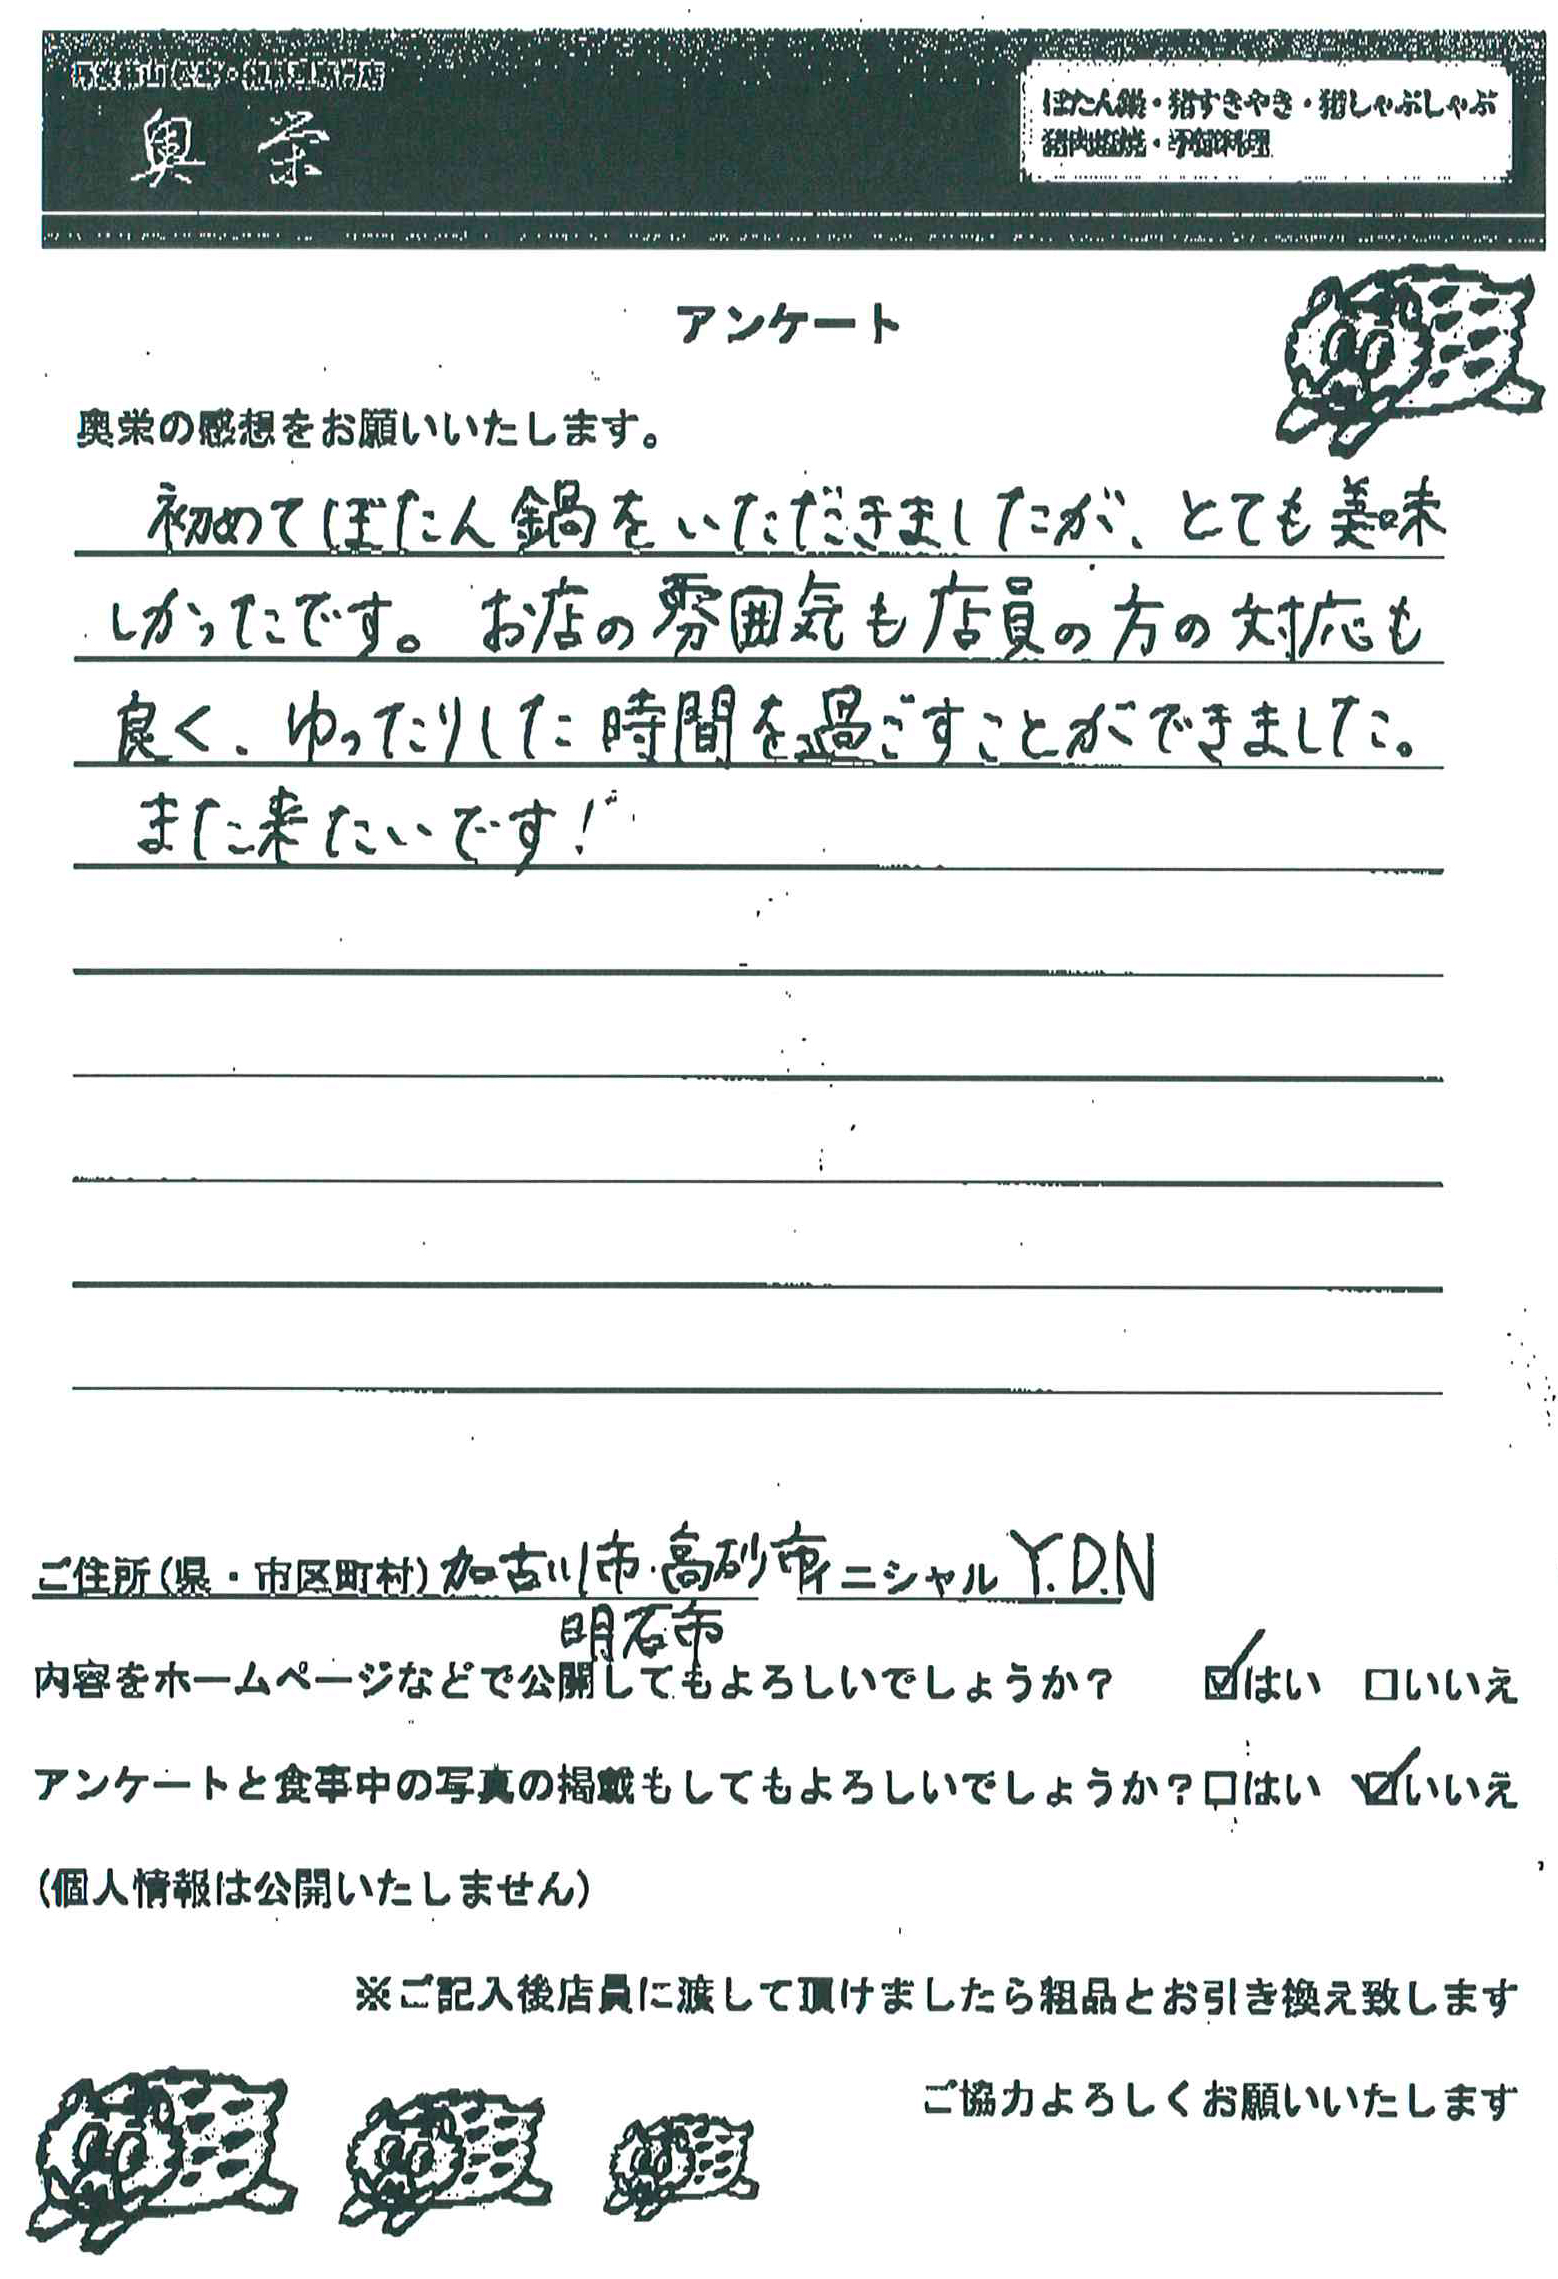 奥栄
ぼたん鍋・猪すきやき・猪しゃぶしゃぶ
アンケート
奥栄の感想をお願いいたします。
初めてぼたん鍋をいただきましたが、とても美味
しかったです。お店の雰囲気も店員の方の対応も
良く、ゆったりした時間を過ごすことができました。
また来たいです!
ご住所(県・市区町村)加古川市・高砂市 イニシャル Y.D.N
明石市
内容をホームページなどで公開してもよろしいでしょうか? ☑はい □いいえ
アンケートと食事中の写真の掲載もしてもよろしいでしょうか?□はい ☑いいえ
(個人情報は公開いたしません)
※ご記入後店員に渡して頂けましたら粗品とお引き換え致します
ご協力よろしくお願いいたします